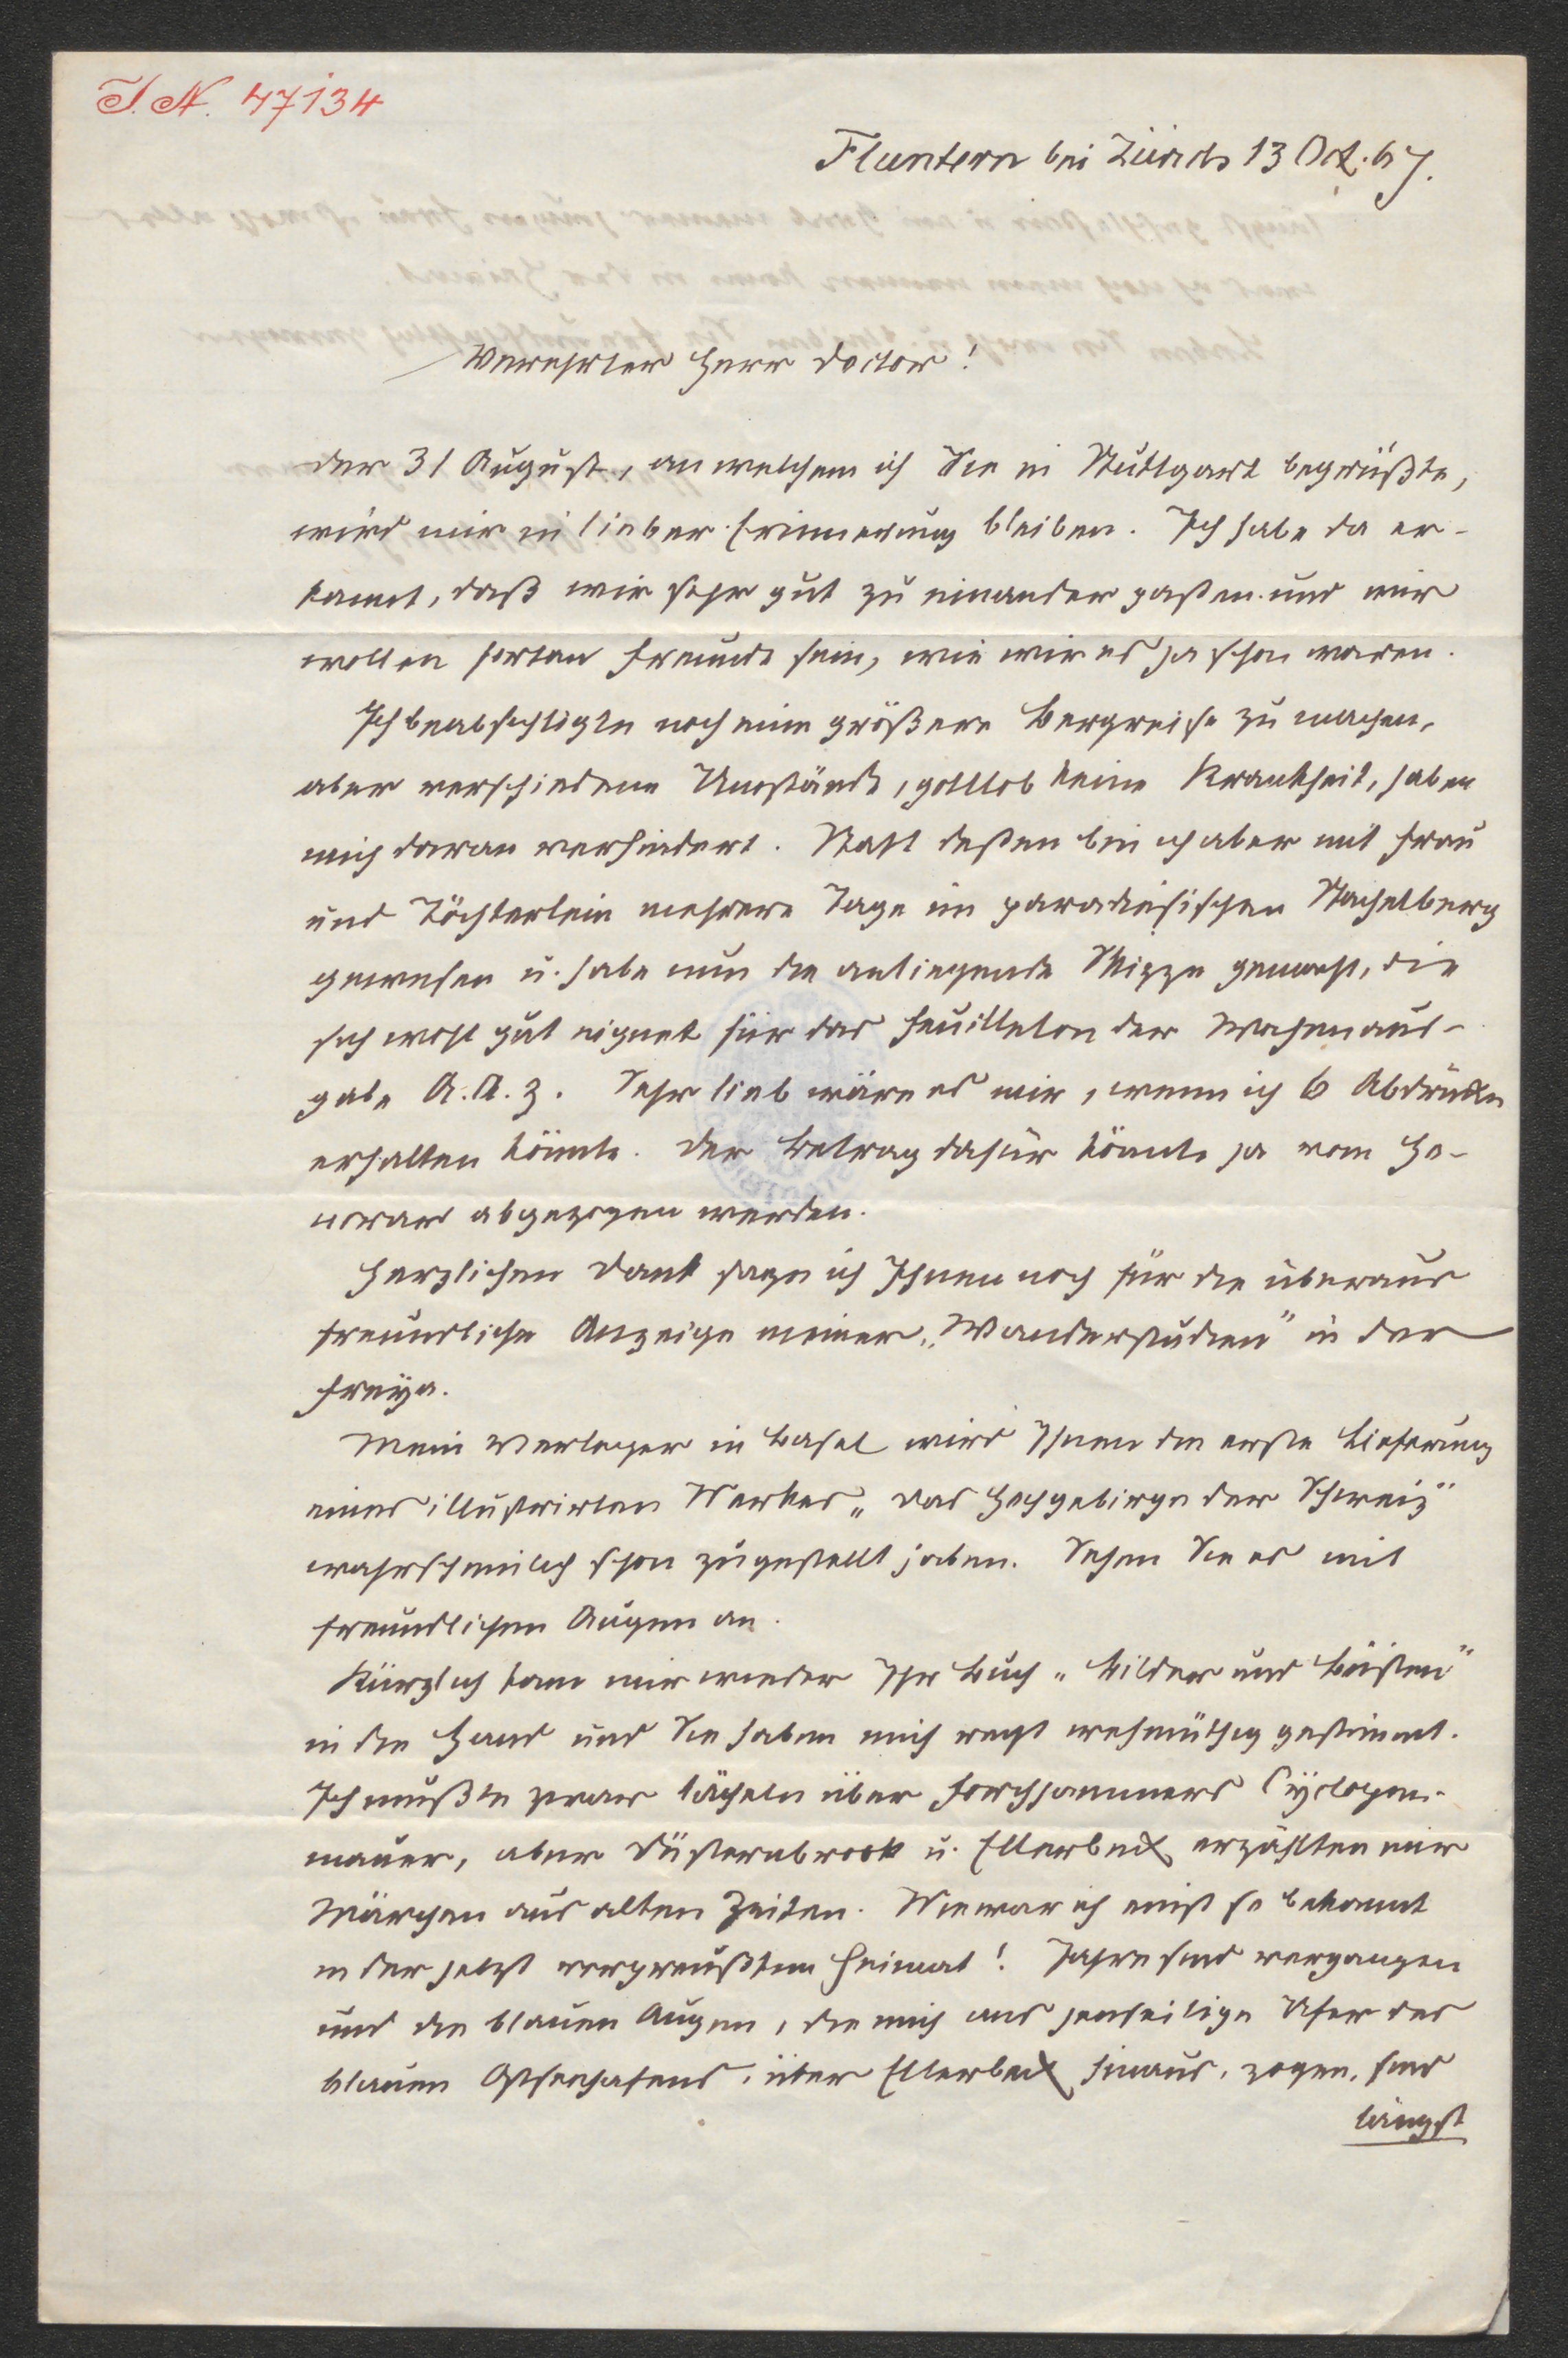 I. N. 47134
Fluntern bei Zürich 13 Oct. 67.
Verehrter Herr Doctor!
Der 31 August, an welchem ich Sie in Stuttgart begrüßte,
wird mir in lieber Erinnerung bleiben. Ich habe da er-
kannt, daß wir sehr gut zu einander paßen und wir
wollen fortan Freunde sein, wie wir es ja schon waren.
Ich beabsichtigte noch eine größere Bergreise zu machen,
aber verschiedene Umstände, gottlob keine Krankheit, haben
mich daran verhindert. Statt deßen bin ich aber mit Frau
und Töchterlein mehrere Tage im paradiesischen Stachelberg
gewesen u. habe nun die anliegende Skizze gemacht, die
sich wohl gut eignet für das Feuilleton der Wochenaus-
gabe A. A. Z. Sehr lieb wäre es mir, wenn ich 6 Abdrücke
erhalten könnte. Der Betrag dafür könnte ja vom Ho-
norar abgezogen werden.
Herzlichen Dank sage ich Ihnen noch für die überaus
freundliche Anzeige meiner „Wanderstudien" in der
Freya.
Mein Verleger in Basel wird Ihnen die erste Lieferung
eines illustrirten Werkes „Das Hochgebirge der Schweiz"
wahrscheinlich schon zugestellt haben. Sehen Sie es mit
freundlichen Augen an.
Kürzlich kam mir wieder Ihr Buch „Bilder und Büsten"
in die Hand und Sie haben mich recht wehmüthig gestimmt.
Ich mußte zwar lächeln über Forchhammers Cyclopen-
mauer, aber Düsternbrook u. Ellerbeck erzählten mir
Märchen aus alten Zeiten. Wie war ich einst so bekannt
in der jetzt verpreußten Heimat! Jahre sind vergangen
und die blauen Augen, die mich ans jenseitige Ufer des
blauen Ostseehafens, über Ellerbeck hinaus, zogen, sind
längst